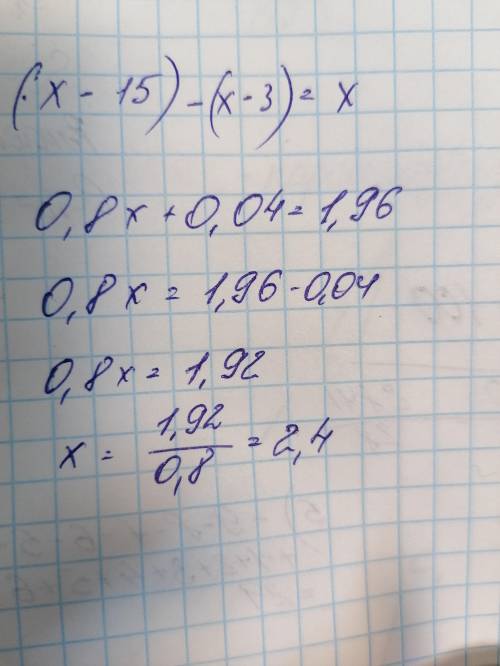 (x - 15) - (x - 3) = x
0,8x + 0,04 = 1,96
0,8x = 1,96 - 0,04
0,8x = 1,92
x = 1,92/0,8 = 2,4